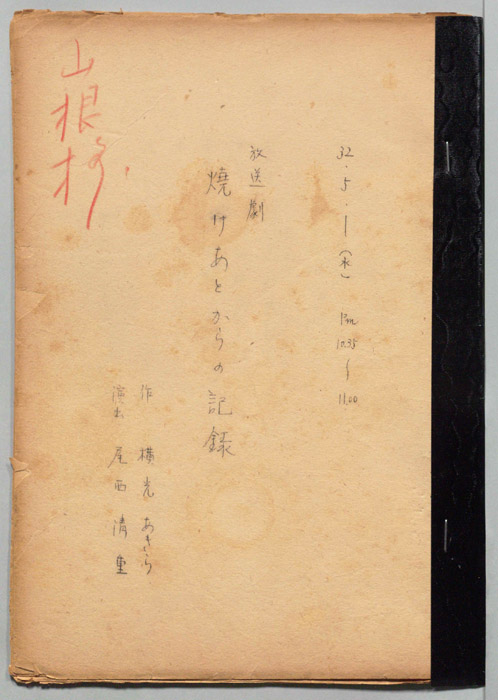 32.5.1(水) Pm 10.35～11.00
放送劇
焼けあとからの記録
作 横光 あきら
演出 尾西 清重
山根